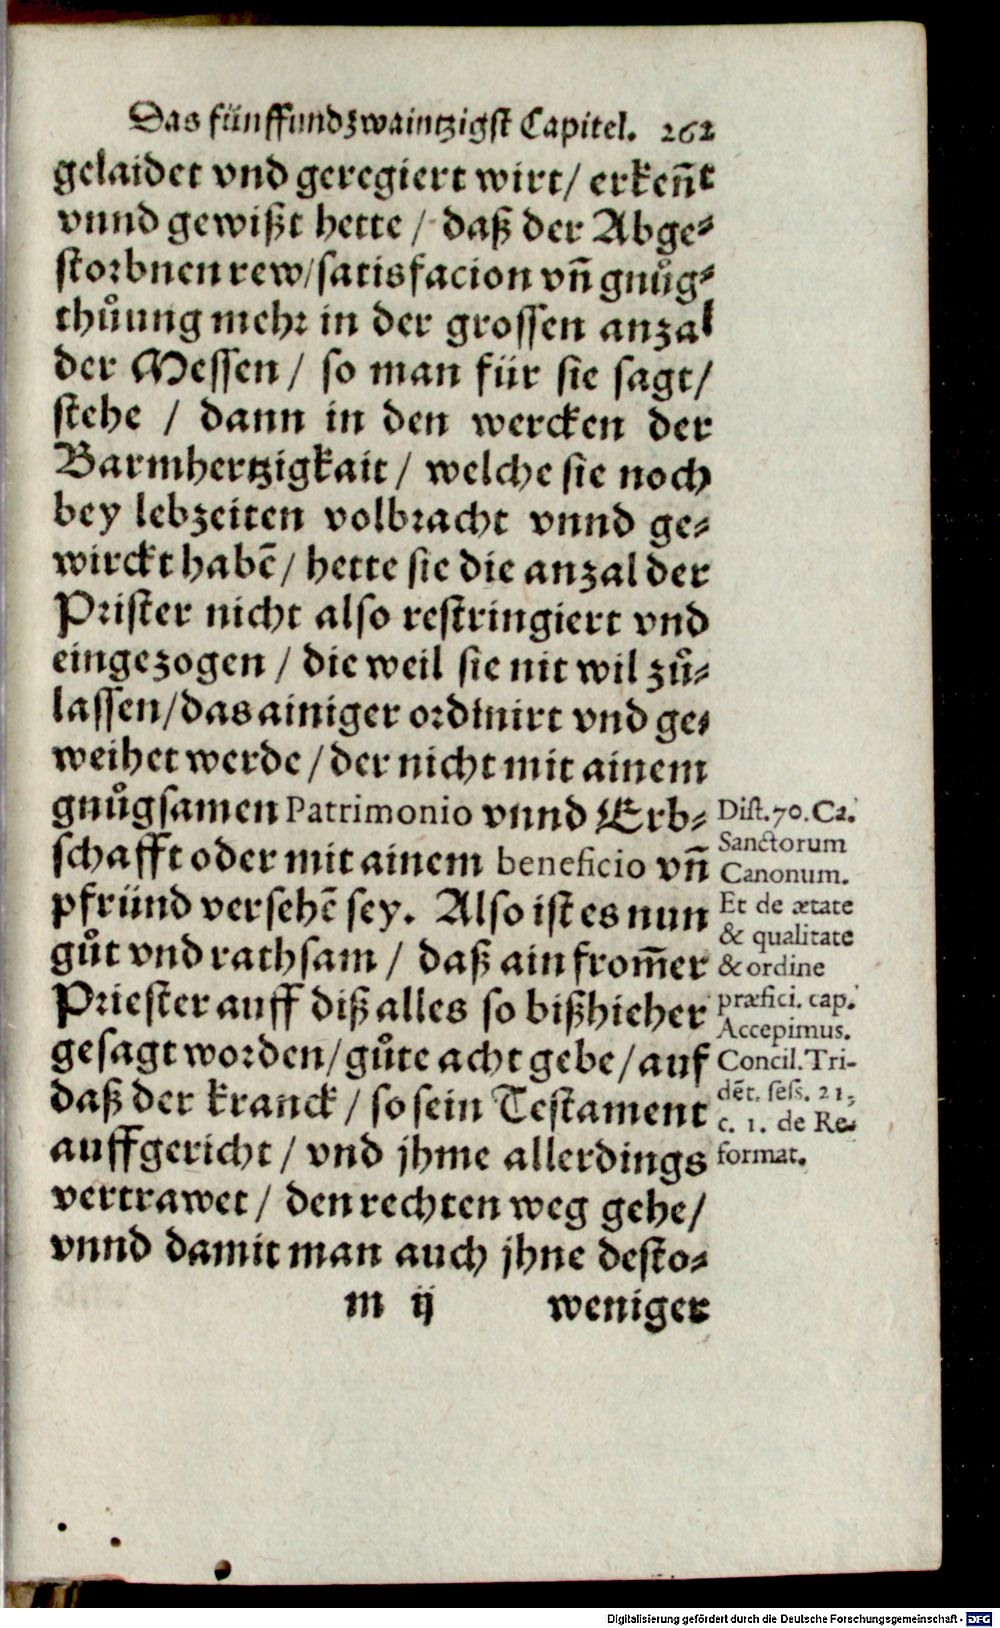 Das fünffundzwaintzigst Capitel. 262
gelaidet vnd geregiert wirt/ erkeñt
vnnd gewißt hette / daß der Abge⸗
storbnen rew/satisfacion vñ gnůg⸗
thůung mehr in der grossen anzal
der Messen / so man für sie sagt/
stehe / dann in den wercken der
Barmhertzigkait / welche sie noch
bey lebzeiten volbracht vnnd ge⸗
wirckt habẽ / hette sie die anzal der
Prister nicht also restringiert vnd
eingezogen / die weil sie nit wil zů⸗
lassen/das ainiger ordinirt vnd ge⸗
weihet werde / der nicht mit ainem
gnůgsamen Patrimonio vnnd Erb⸗
schafft oder mit ainem beneficio vñ
pfründ versehẽ sey. Also ist es nun
gůt vnd rathsam / daß ain from̃er
Priester auff diß alles so bißhieher
gesagt worden/gůte acht gebe/auf
daß der kranck / so sein Testament
auffgericht / vnd jhme allerdings
vertrawet / den rechten weg gehe/
vnnd damit man auch jhne desto⸗
m ij weniger
Dist.70.Ca.
Sanctorum
Canonum.
Et de ætate
& qualitate
& ordine
præfici. cap.
Accepimus.
Concil. Tri-
dẽt. sess. 21,
c. 1. de Re-
format.
Digitalisierung gefördert durch die Deutsche Forschungsgemeinschaft - DFG